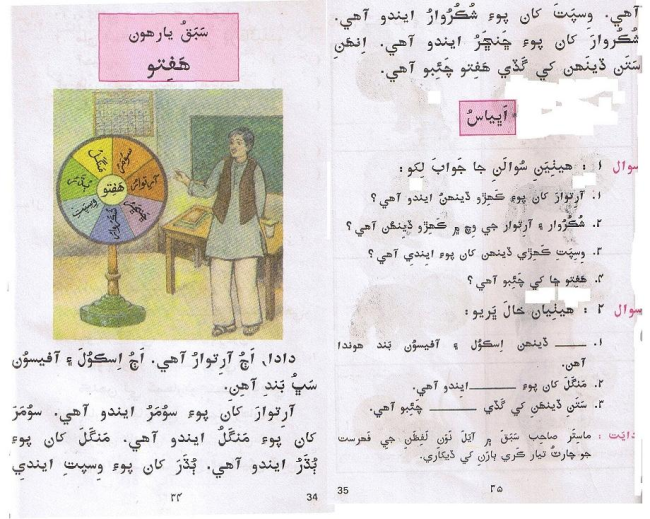 سَبَقُ يارهون
هَفِتو
هَفتو
آرتوارُ
سُومَرُ
مَنگَلُ
ٻُڌَرُ
وِسپَتِ
شُڪُروارُ
ڇَنڇَرُ
دادا، اَڄُ آرِتوارُ آهي. اَڄُ اِسڪُولَ ۽ آفيسوُن
سَڀُ بَندِ آهِن.
آرِتوارَ کان پوءِ سوُمَرُ ايندو آهي. سوُمَرَ
کان پوءِ مَنگَلُ ايندو آهي. مَنگَلَ کان پوءِ
ٻُڌَرُ ايندو آهي. ٻُڌَرَ کان پوءِ وِسپتِ ايندي
۳۴
34
آهي. وِسپَتَ کان پوءِ شُڪُروارُ ايندو آهي.
شُڪُروارَ کان پوءِ ڇَنڇَرُ ايندو آهي. اِنهَنِ
سَتَن ڏينَهن کي گَڏي هَفتو چَئِبو آهي.
اَڀياسُ
سوال ۱ : هيٺِيَن سُوالَن جا جَوابَ لِکو :
۱. آرِتوارَ کان پوءِ ڪَهِڙو ڏينهنُ ايندو آهي؟
۲. شُڪُروار ۽ آرِتوار جي وِچ ۾ ڪَهِڙو ڏينهَن آهي؟
۳. وِسِپَتِ ڪَهِڙي ڏينهن کان پوءِ ايندِي آهي؟
۴. هَفتو ڇا کي چَئِبو آهي؟
سوال ۲ : هيٺِيان خالَ ڀَريو :
۱. ــــــ ڏينهن اِسڪُول ۽ آفيسوُن بَند هوندا
آهن.
۲. مَنگَلَ کان پوءِ ــــــ ايندو آهي.
۳. سَتَن ڏينَهن کي گَڏي ــــــ چَئِبو آهي.
دايَت : ماستَر صاحِب سَبَقَ ۾ آيَلَ نَوَن لَفظَنِ جِي فَهرست
جو چارٽُ تيار ڪَري ٻارَنِ کي ڏيکاري.
۳۵
35